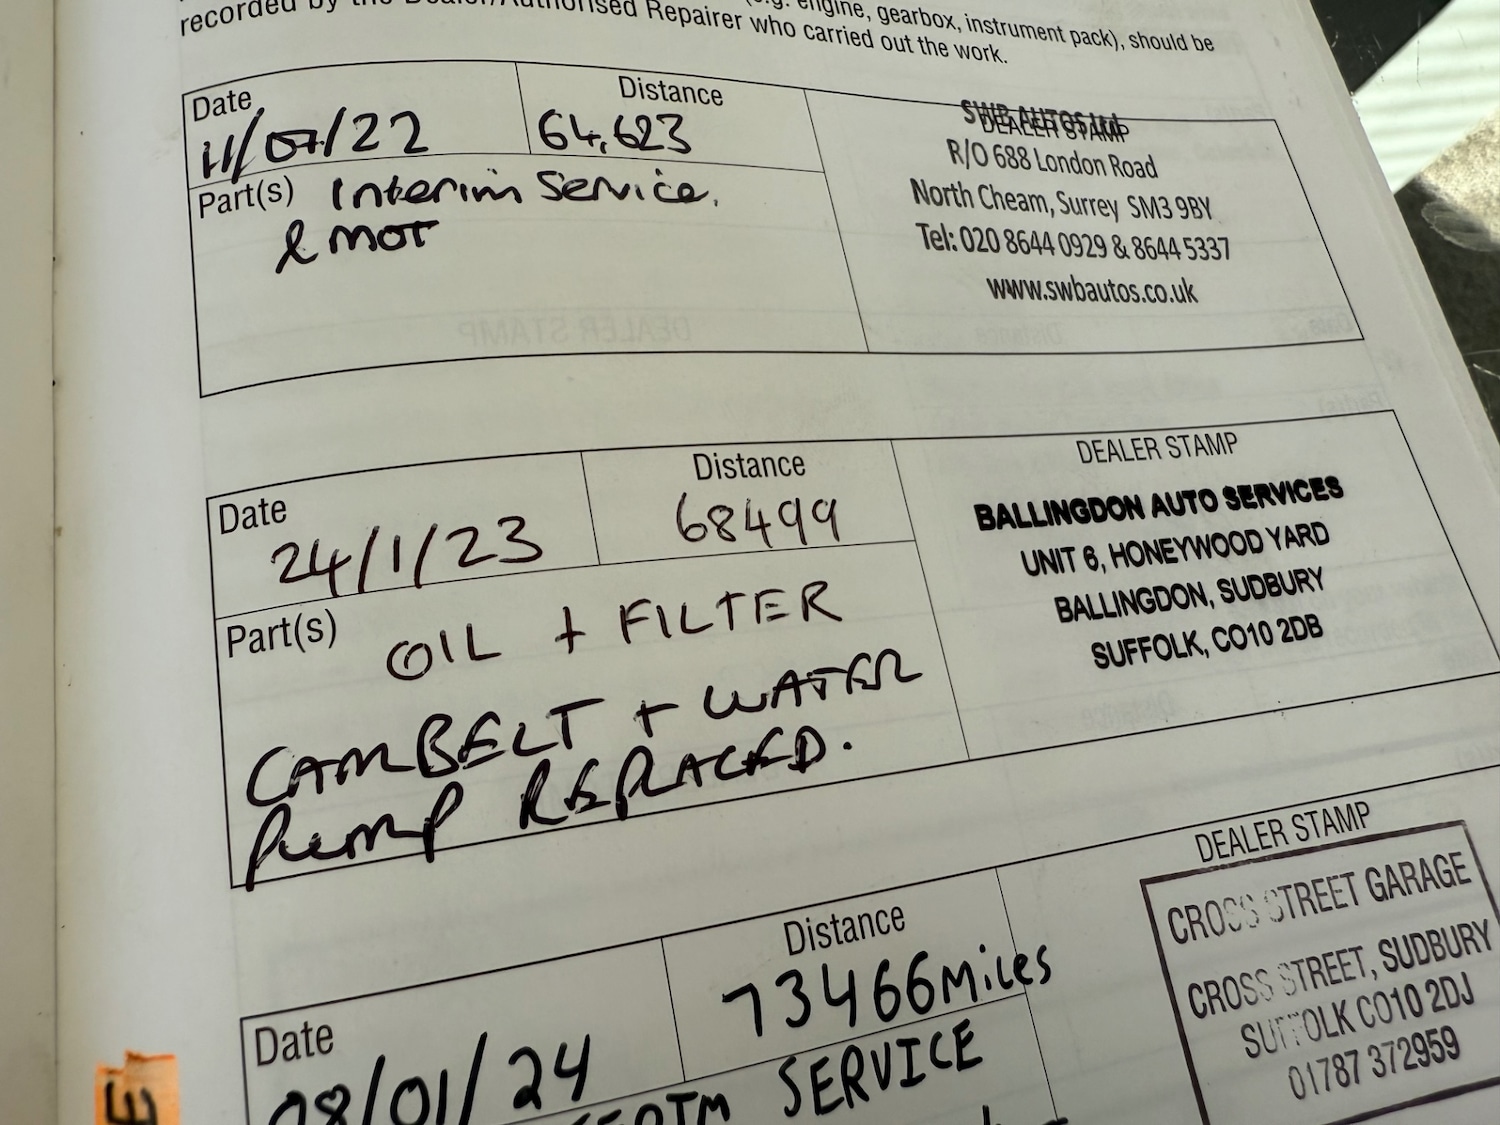 (e.g. engine, gearbox, instrument pack), should be
recorded by the Dealer/Authorised Repairer who carried out the work.
Date
11/07/22
Distance
64,623
Part(s) Interim Service.
& MOT
SWB AUTOS Ltd
DEALER STAMP
R/O 688 London Road
North Cheam, Surrey SM3 9BY
Tel: 020 8644 0929 & 8644 5337
www.swbautos.co.uk
Date
24/1/23
Distance
68499
Part(s) OIL + FILTER
CAMBELT + WATER
PUMP REPLACED.
DEALER STAMP
BALLINGDON AUTO SERVICES
UNIT 6, HONEYWOOD YARD
BALLINGDON, SUDBURY
SUFFOLK, CO10 2DB
Date
08/01/24
Distance
73466 miles
SERVICE
DEALER STAMP
CROSS STREET GARAGE
CROSS STREET, SUDBURY
SUFFOLK CO10 2DJ
01787 372959